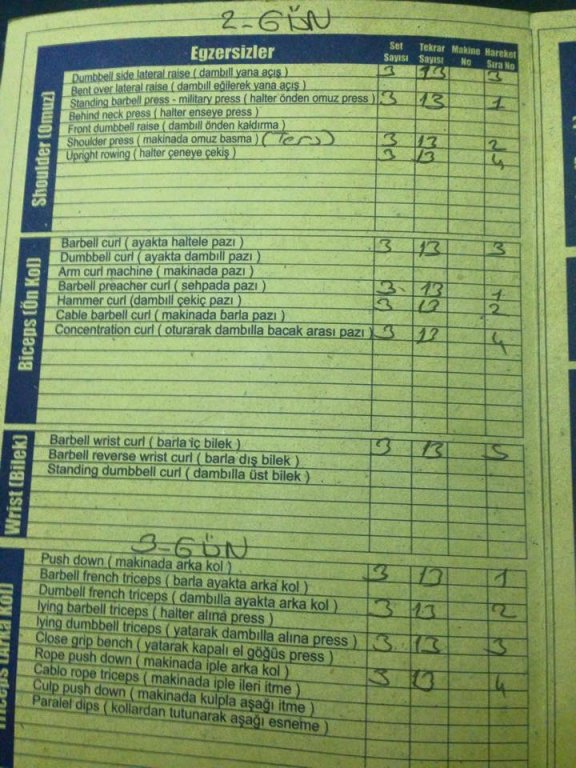 2-GÜN
Egzersizler Set Sayısı Tekrar Sayısı Makine No Hareket Sıra No
Shoulder (Omuz)
Dumbbell side lateral raise ( dambıll yana açış ) 3 13 3
Bent over lateral raise ( dambıll eğilerek yana açış )
Standing barbell press - military press ( halter önden omuz press ) 3 13 1
Behind neck press ( halter enseye press )
Front dumbbell raise ( dambıll önden kaldırma )
Shoulder press ( makinada omuz basma ) (Ters) 3 13 2
Upright rowing ( halter çeneye çekiş ) 3 13 4
Biceps (Ön Kol)
Barbell curl ( ayakta haltele pazı ) 3 13 3
Dumbbell curl ( ayakta dambıll pazı )
Arm curl machine ( makinada pazı )
Barbell preacher curl ( sehpada pazı ) 3 13 1
Hammer curl (dambıll çekiç pazı ) 3 13 2
Cable barbell curl ( makinada barla pazı )
Concentration curl ( oturarak dambılla bacak arası pazı ) 3 13 4
Wrist (Bilek)
Barbell wrist curl ( barla iç bilek ) 3 13 5
Barbell reverse wrist curl ( barla dış bilek )
Standing dumbbell curl ( dambılla üst bilek )
3-GÜN
Push down ( makinada arka kol )
Barbell french triceps ( barla ayakta arka kol ) 3 13 1
Dumbell french triceps ( dambılla ayakta arka kol )
lying barbell triceps ( halter alına press ) 3 13 2
lying dumbbell triceps ( yatarak dambılla alına press )
Close grip bench ( yatarak kapalı el göğüs press ) 3 13 3
Rope push down ( makinada iple arka kol )
Cablo rope triceps ( makinada iple ileri itme ) 3 13 4
Culp push down ( makinada kulpla aşağı itme )
Paralel dips ( kollardan tutunarak aşağı esneme )